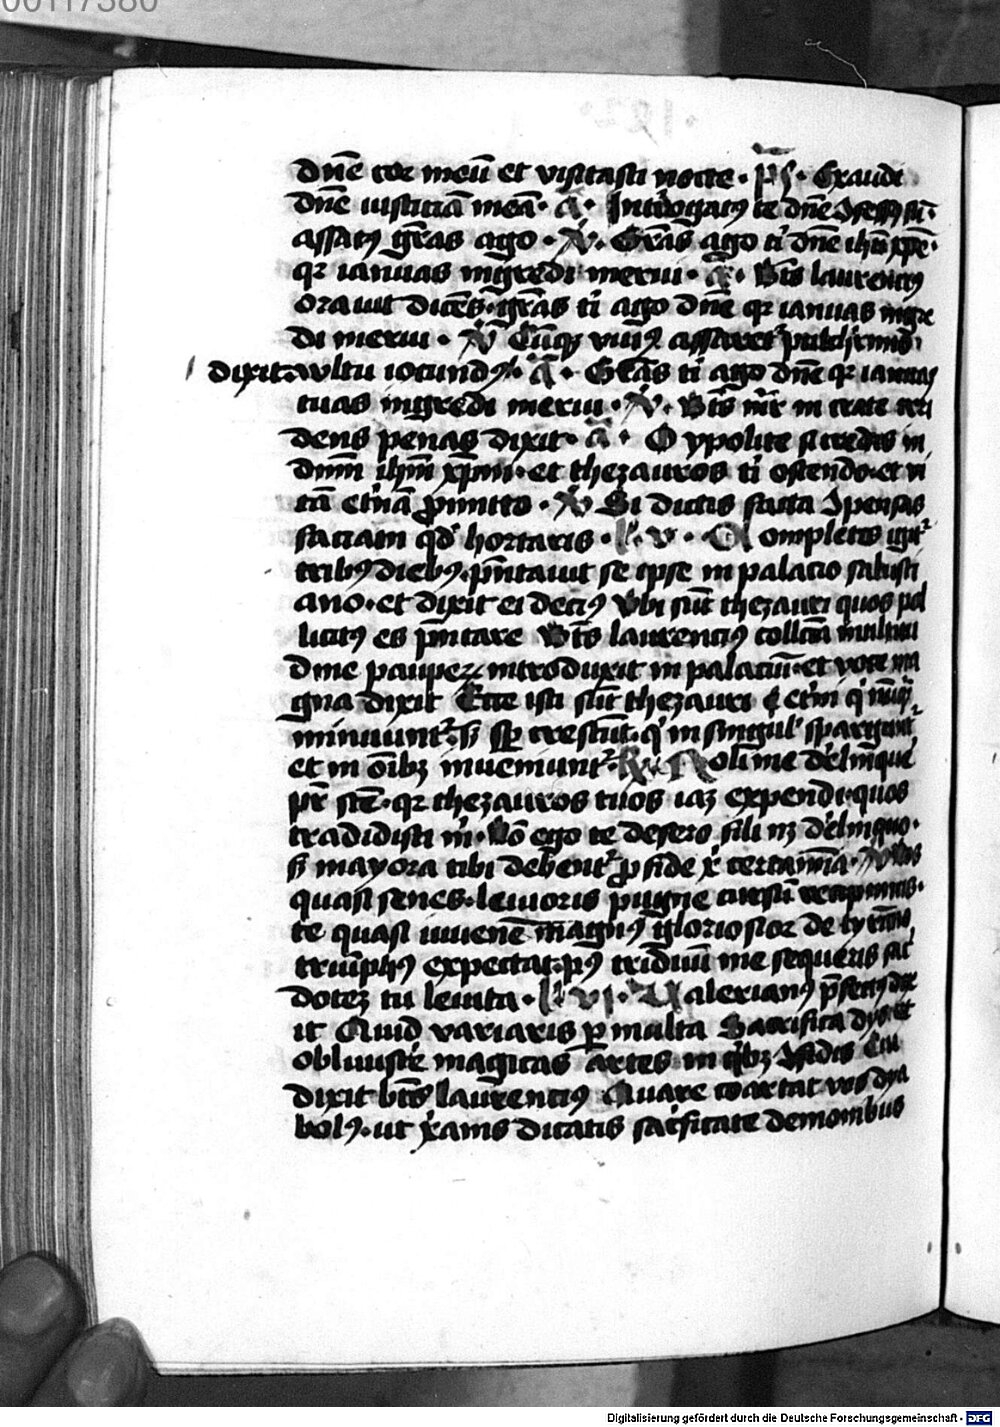 00117380
dn̄e cor meū et visitasti nocte · p̄s · Exaudi
dn̄e iusticiā meā · a · Int̄rogatꝰ te dn̄e ꝯfessꝰ sū ·
assatꝰ gr̄as ago · v̄ · Gr̄as ago ti dn̄e ih̄u xp̄e ·
qr ianuas ingredi merui · a · Bt̄s laurencius
orauit dicēs · gr̄as ti ago dn̄e qr ianuas ingre
di merui · v̄ Cūqꝫ viuꝰ assaret᷑
dixit · vultu iocundꝰ · a · Gr̄as ti ago dn̄e qr ianuas
tuas ingredi merui · v̄ · Bt̄s mr̄ in crate
dens penas dixit · a · O ypolite si credis in
dn̄m ih̄m xp̄m · et thezauros ti ostendo · et vi
tā et̄nā ꝓmitto · v̄ Si dictis facta ꝯpensas
faciam qd̄ hortaris · l · v · Completis igit᷑
tribꝰ diebꝰ · p̄ntauit se ipse in palacio salusti
ano · et dixit ei deciꝰ Vbi sūt thezauri quos pol
licitꝰ es p̄ntare Bt̄s laurenciꝰ collc̄ā multitu
dine pauperꝝ introduxit in palaciū · et voce ma
gna dixit Ecce isti sūt thezauri et̄ni q̇ nūqꝫ
minuunt᷑ · s̄ sp̄ crescūt · q̇ in singul᷑ spargunt᷑
et in oīb᷒ inueniunt᷑ · R · Noli me derelinque
pr̄ scē · qr thezauros tuos iaꝫ expendi · quos
tradidisti m̄ · Nō ego te desero fili nꝫ derelinquo ·
s̄ mayora tibi debent᷑ ꝓ fide x̄ certamīa · v̄ Nos
quasi senes · leuioris pugne cursū recipimus ·
te quasi iuuenē magnꝰ gloriosior de tyrāno
triūphꝰ expectat · pꝰ triduū me sequeris sac̄
doteꝫ tu leuita · l · vi · Ualerianꝰ p̄fectꝰ dix
it Quid variaris ꝑ multa Sacrifica dys et
obliuiscere magicas artes in q̇bꝫ ꝯfidis Cui
dixit bt̄s laurenciꝰ Quare coartat vos dya
bolꝰ · ut x̄anis dicatis sac̄ficate demonibus
Digitalisierung gefördert durch die Deutsche Forschungsgemeinschaft - DFG